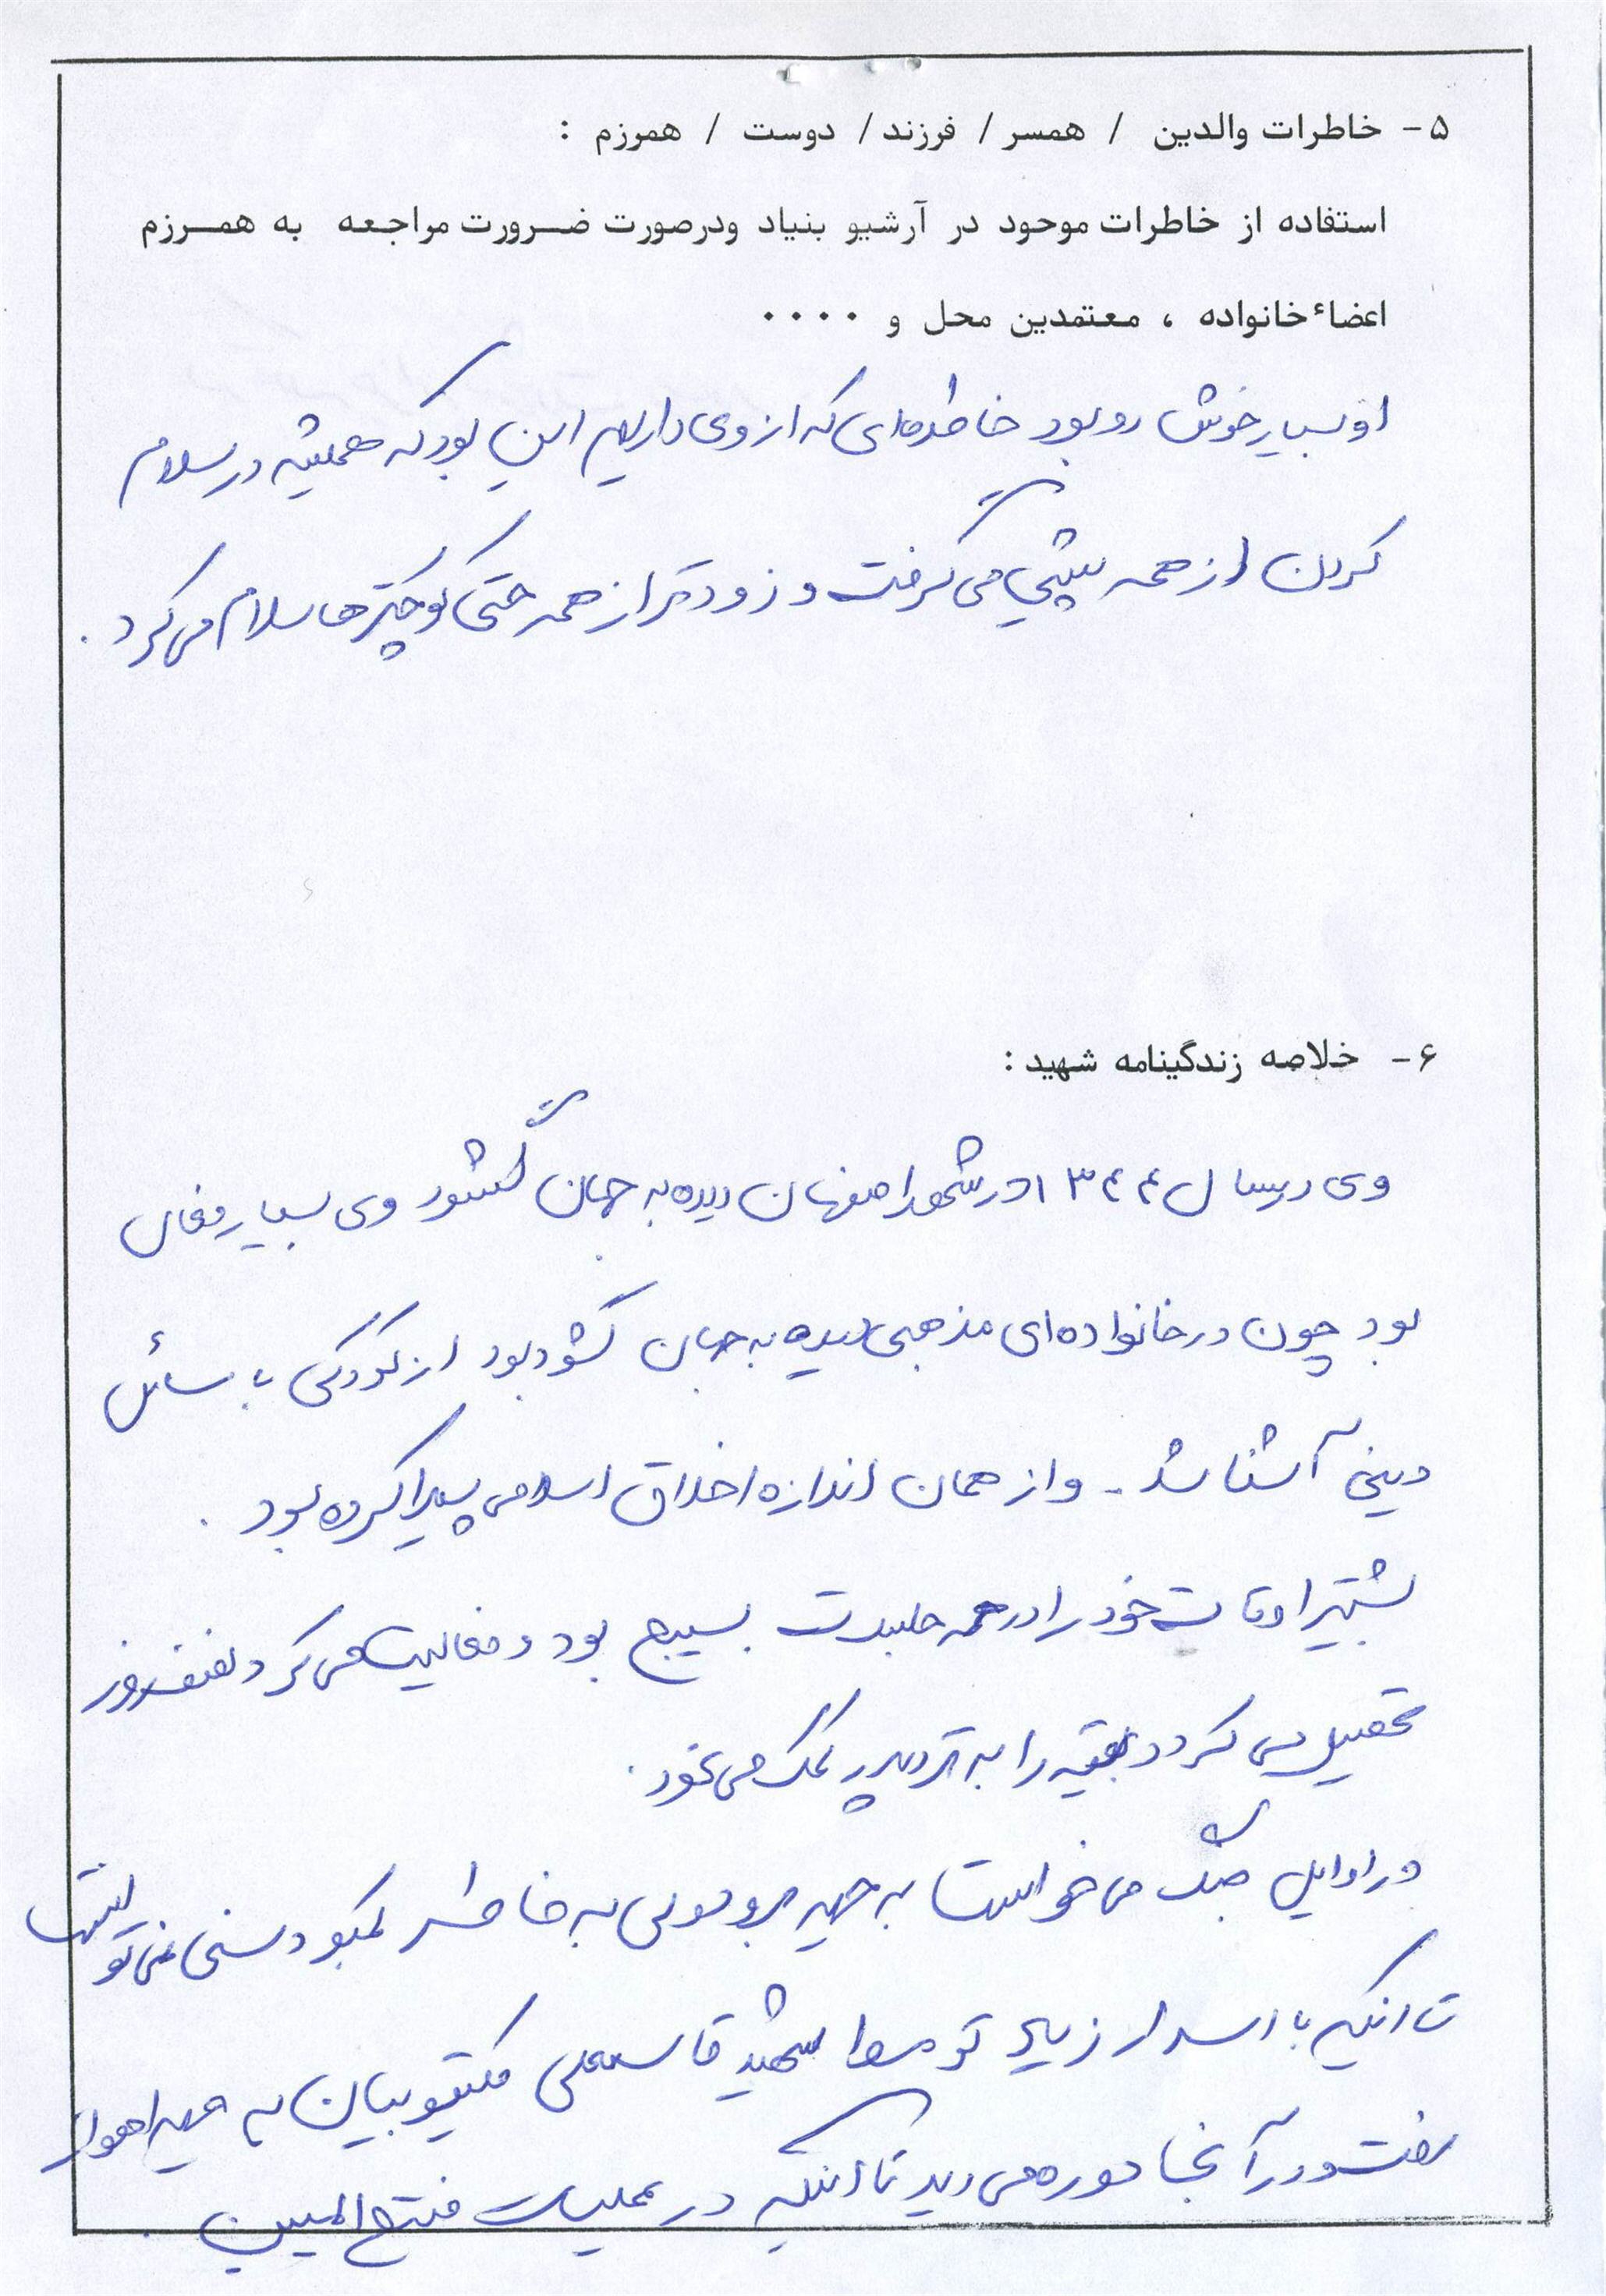 ۵- خاطرات والدین / همسر / فرزند / دوست / همرزم :
استفاده از خاطرات موحود در آرشیو بنیاد ودرصورت ضرورت مراجعه به همرزم
اعضاء خانواده ، معتمدین محل و ۰۰۰۰
او بسیار خوش رو بود خاطره‌ای که از وی داریم این بود که همیشه در سلام
کردن از همه پیشی می گرفت و زودتر از همه حتی کوچکترها سلام می کرد .
۶- خلاصه زندگینامه شهید :
وی در سال ۱۳۴۴ در شهر اصفهان دیده به جهان گشود وی بسیار فعال
بود چون در خانواده ای مذهبی دیده به جهان گشود بود از کودکی با مسائل
دینی آشنا شد . و از همان اندازه اخلاق اسلامی پیدا کرده بود .
بیشتر اوقات خود را در همه جلسات بسیج بود و فعالیت می کرد و نصف روز
تحصیل می کرد و بقیه را به نزد پدر کمک می نمود .
در اوایل جنگ می خواست به جبهه برود ولی به خاطر کمبود سنی نمی توانست
تا اینکه با اصرار زیاد توسط شهید قاسمعلی به جبهه اهواز
رفت و در آنجا دوره می دید تا اینکه در عملیات فتح المبین .